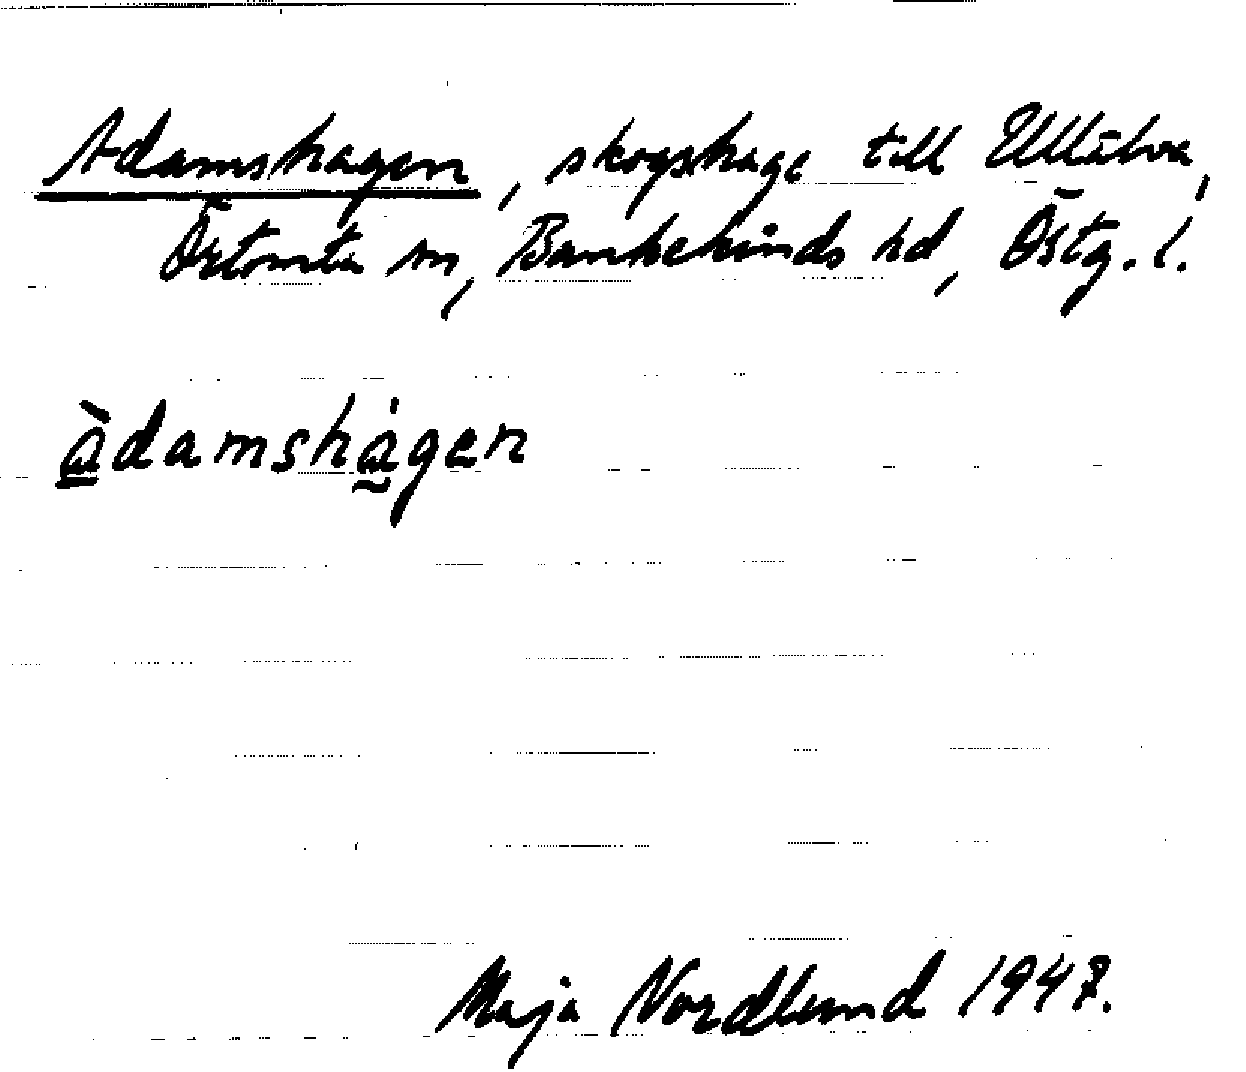 Adamshagen, skogshage till Ullälva,
Örtomta sn, Bankekinds hd, Östg. l.
àdamshágen
Maja Nordlund 1947.